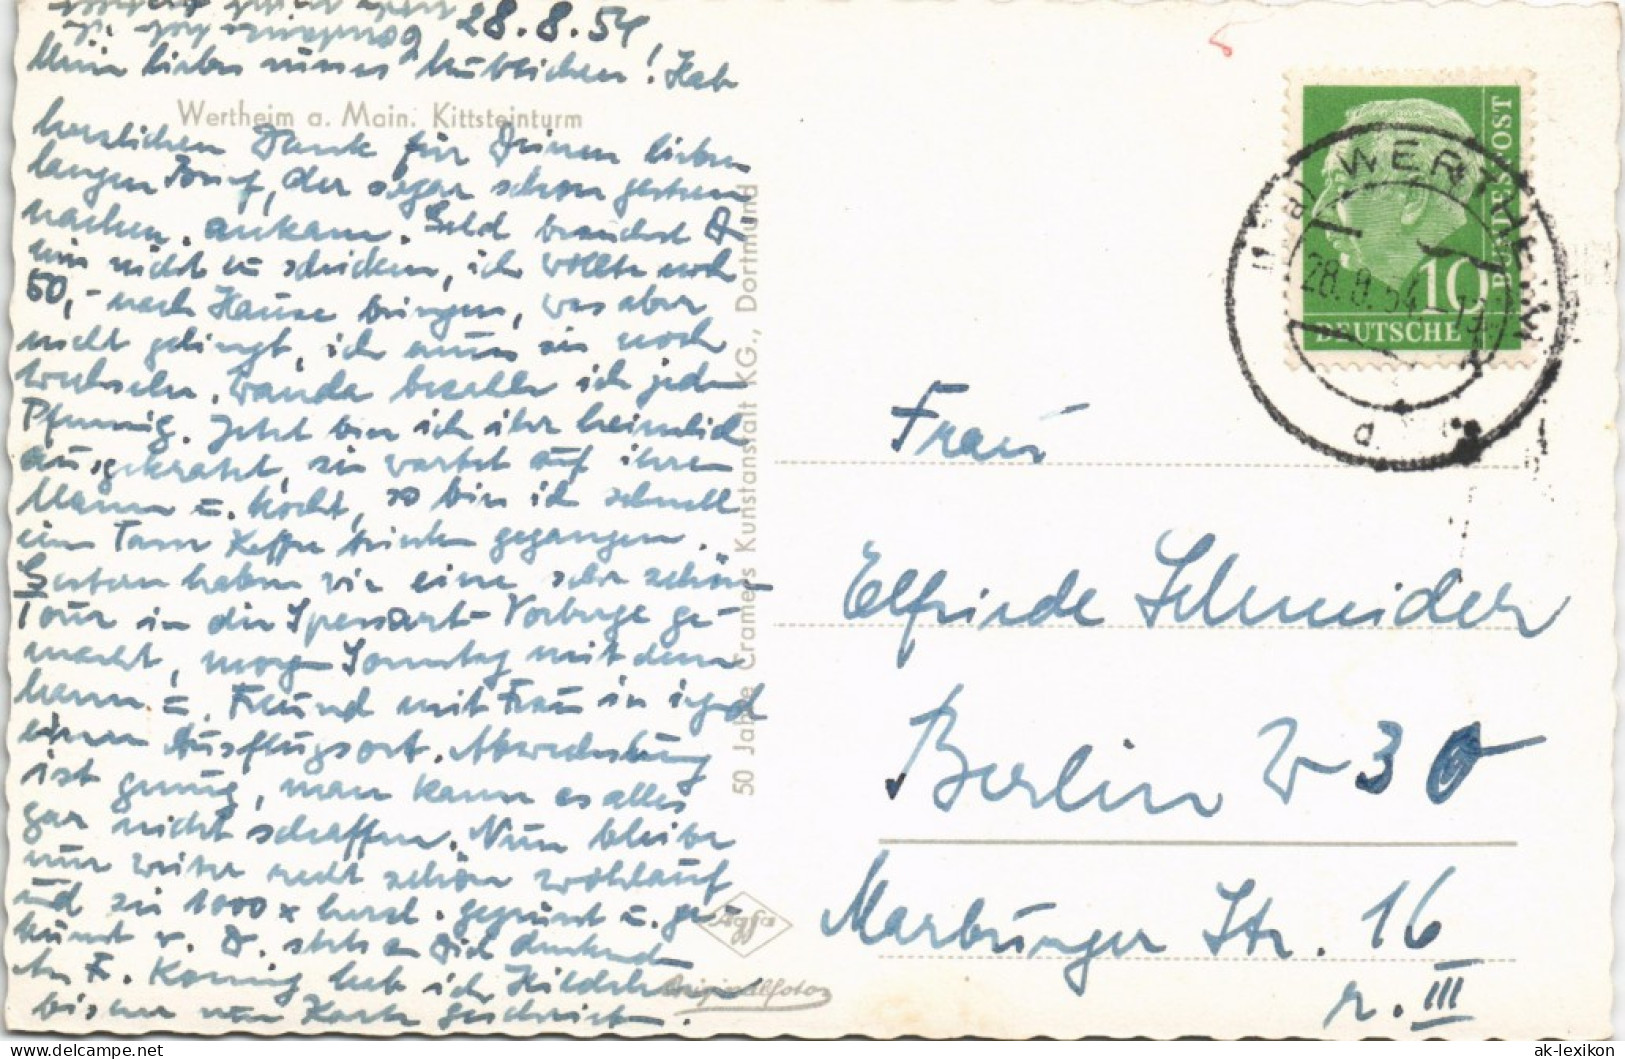 28.8.54
Mein liebes süsses Mübeichen! Hab
Wertheim a. Main. Kittsteinturm
herzlichen Dank für Deinen lieben
langen Brief, der sogar schon gestern
nachm. ankam. Geld brauchst D
mir nicht zu schicken, ich wollte noch
50,- nach Hause bringen, was aber
nicht gelingt, ich muss sie noch
wechseln. Wanda bezahle ich jeden
Pfennig. Jetzt bin ich ihr heimlich
ausgekratzt, sie wartet auf ihren
Mann u. kocht, so bin ich schnell
eine Tasse Kaffee trinken gegangen.
Gestern haben wir eine sehr schöne
Tour in die Spessart-Vorberge ge-
macht, morgen Sonntag mit dem
Mann u. Freund mit Frau in irgend
einen Ausflugsort. Abwechslung
ist genug, man kann es alles
gar nicht schaffen. Nun bleibe
nur weiter recht schön wohlauf
und sei 1000 x herzl. gegrüsst u. ge-
küsst v. D. stets an Dich denkend
An F. König hab ich
bisher nur Karte geschrieben.
50 Jahre Cramers Kunstanstalt KG., Dortmund
Agfa
Originalfoto
DEUTSCHE BUNDESPOST
10
WERTHEIM
28.8.54
Frau
Elfriede Schneider
Berlin W 30
Marburger Str. 16
r. III
ak-lexikon